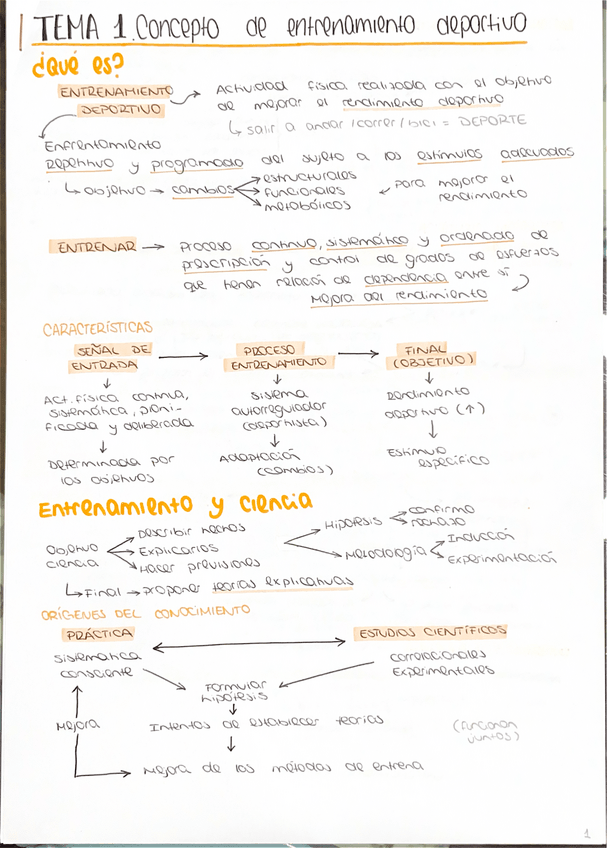 TEMA 1. Concepto de entrenamiento deportivo
¿Qué es?
ENTRENAMIENTO DEPORTIVO → Actividad física realizada con el objetivo
de mejorar el rendimiento deportivo
↳ salir a andar / correr / bici = DEPORTE
Enfrentamiento
repetitivo y programado del sujeto a los estímulos adecuados
↳ objetivo → cambios
estructurales
funcionales
metabólicos
para mejorar el
rendimiento
ENTRENAR → Proceso continuo, sistemático y ordenado de
prescripción y control de grados de esfuerzos
que tienen relación de dependencia entre sí
Mejora del rendimiento
CARACTERÍSTICAS
SEÑAL DE
ENTRADA
→
PROCESO
ENTRENAMIENTO
→
FINAL
(OBJETIVO)
Act. física continua,
sistemática, plani-
ficada y deliberada
Determinada por
los objetivos
Sistema
autorregulador
(deportista)
Adaptación
(cambios)
Rendimiento
deportivo (↑)
Estímulo
específico
Entrenamiento y ciencia
Objetivo
ciencia
Describir hechos
Explicarlos
Hacer previsiones
Hipótesis
confirmo
rechazo
Metodología
Inducción
Experimentación
↳ Final → proponer teorías explicativas
ORÍGENES DEL CONOCIMIENTO
PRÁCTICA
ESTUDIOS CIENTÍFICOS
Sistemática
consciente
correlacionales
Experimentales
Formular
hipótesis
Mejora
Intentos de establecer teorías
(funcionan
juntos)
Mejora de los métodos de entrena
1